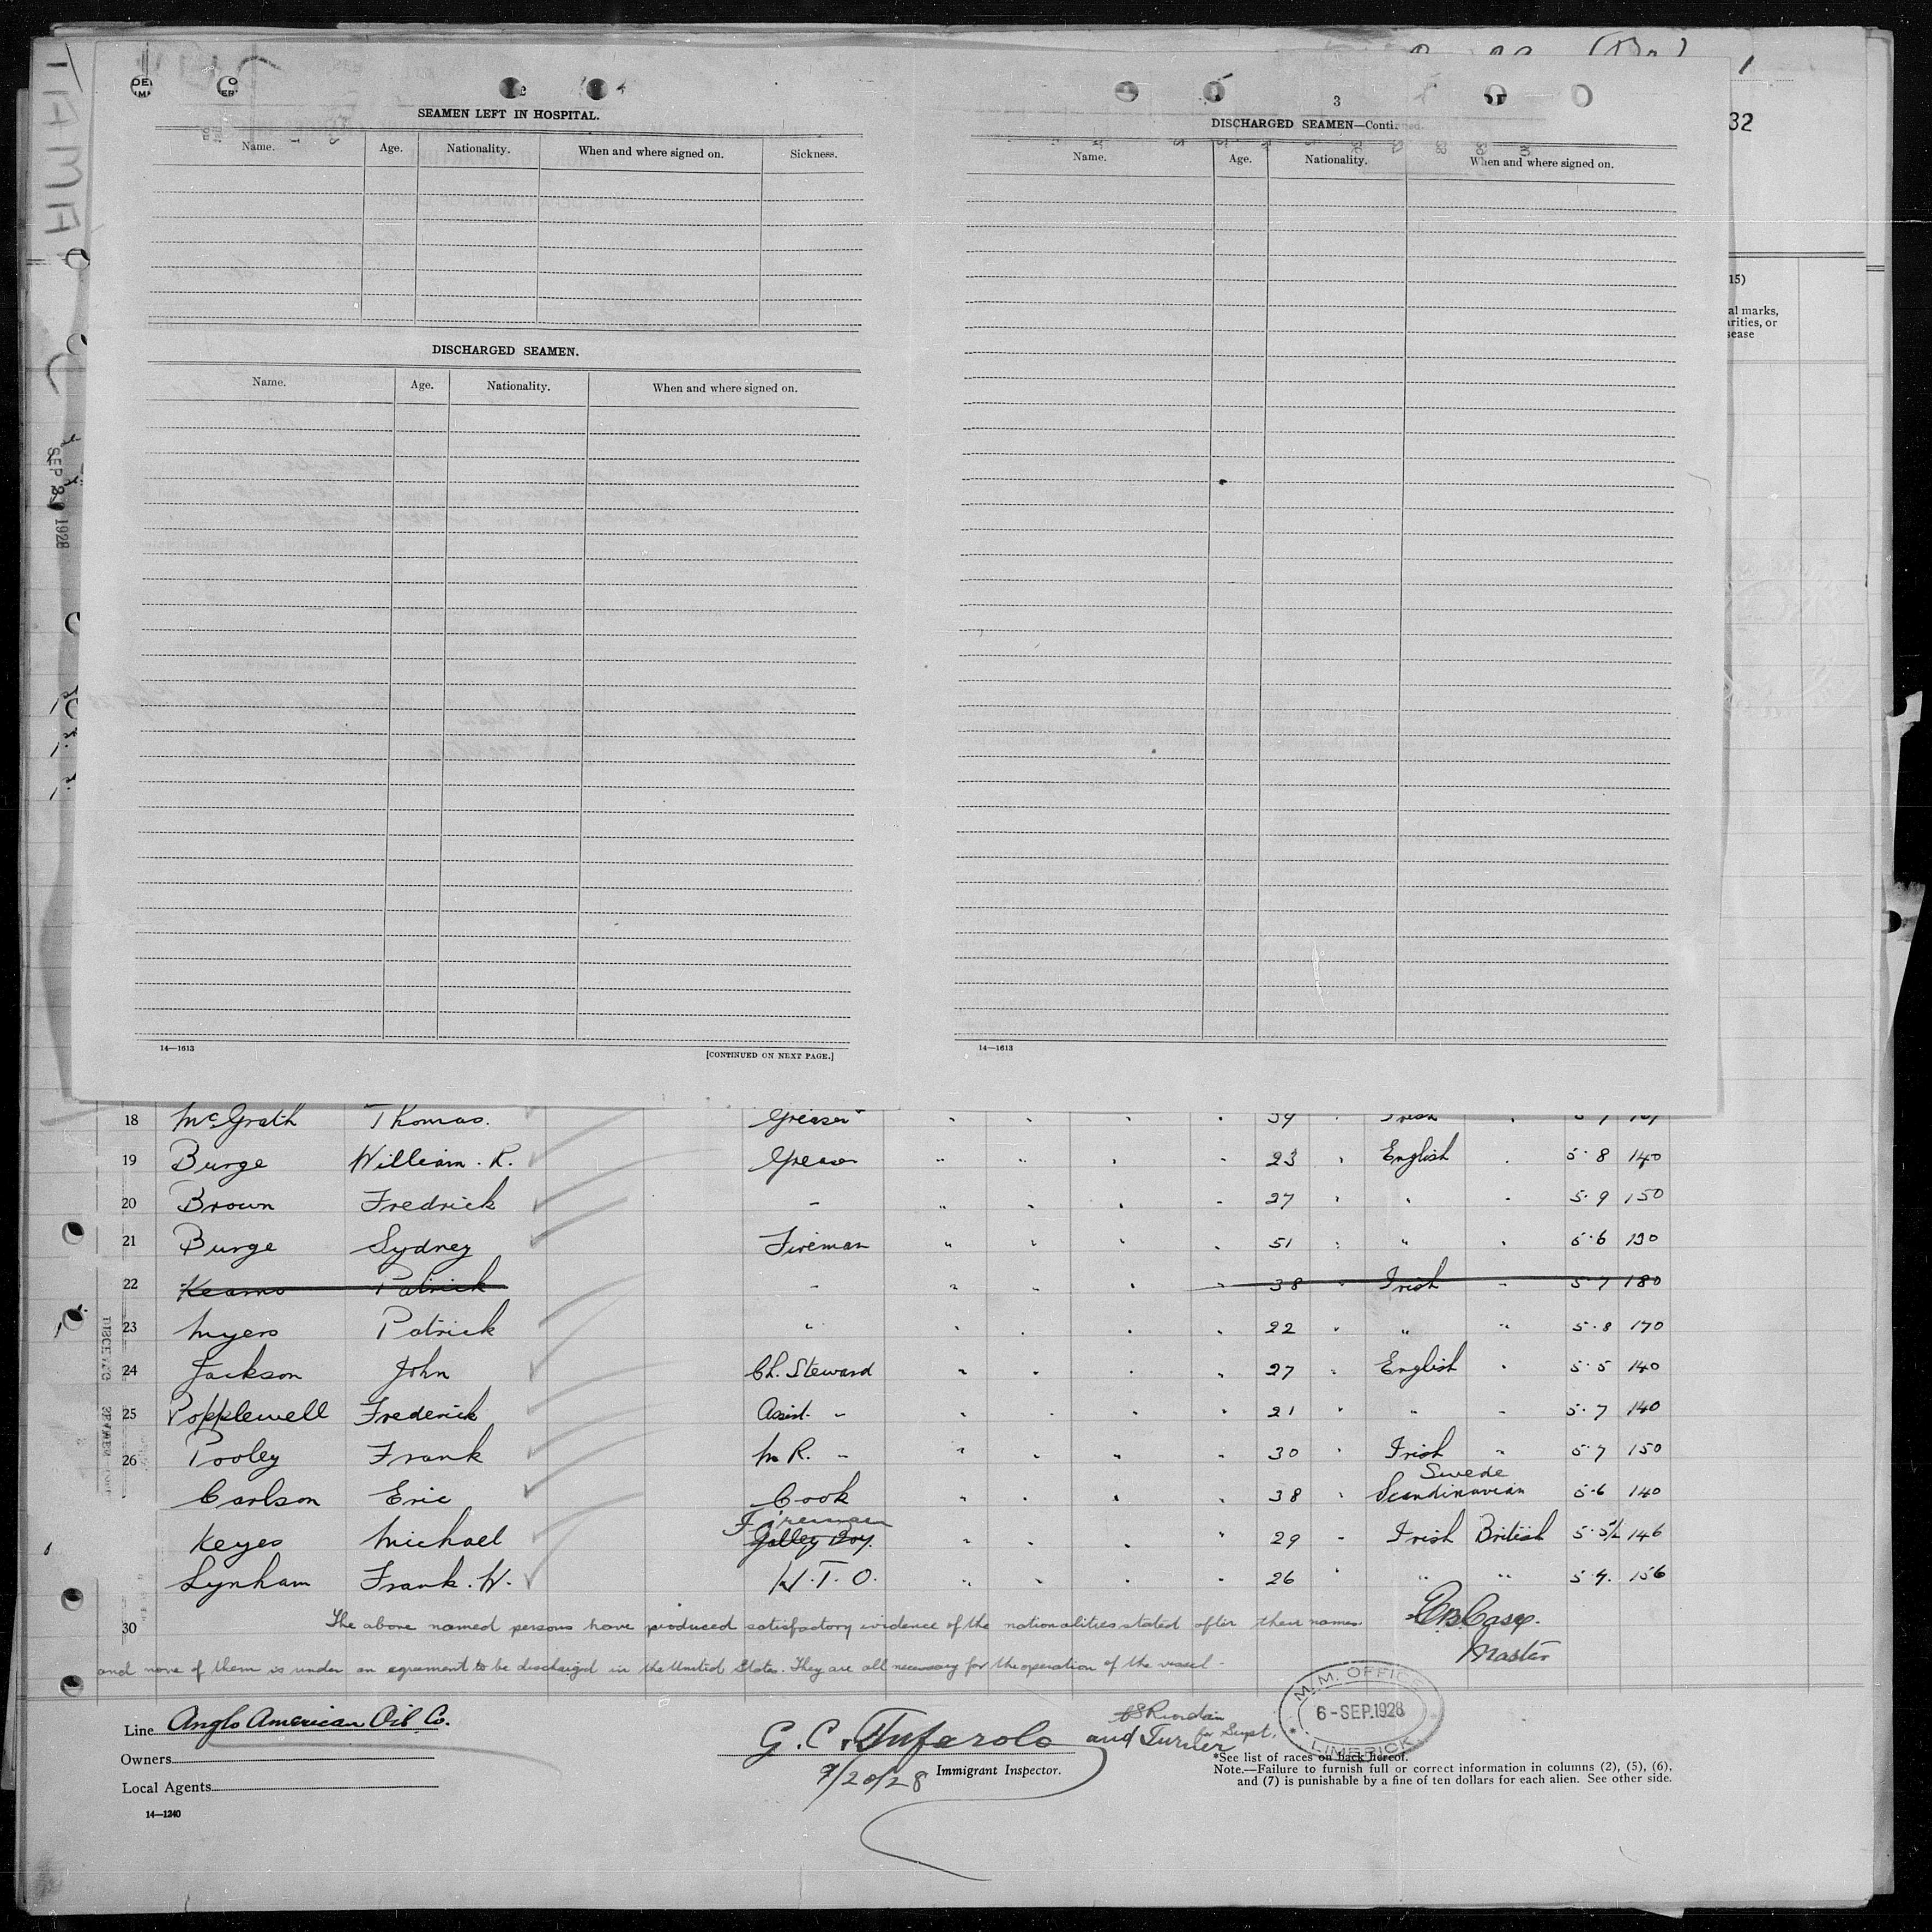 32
SEAMEN LEFT IN HOSPITAL.
Name. Age. Nationality. When and where signed on. Sickness.
DISCHARGED SEAMEN.
Name. Age. Nationality. When and where signed on.
14—1613 [CONTINUED ON NEXT PAGE.]
3
DISCHARGED SEAMEN—Conti
Name. Age. Nationality. When and where signed on.
14—1613
15)
al marks,
arities, or
sease
SEP 1928
18 McGrath Thomas. Greaser 39 Irish
19 Burge William. R. Greaser " " " " 23 " English " 5·8 140
20 Brown Fredrick " " " " " 27 " " " 5·9 150
21 Burge Sydney Fireman " " " " 51 " " " 5·6 130
22 Kearns Patrick " " " " " 38 " Irish " 5·7 180
23 Myers Patrick " " " " " 22 " " " 5·8 170
24 Jackson John Ch. Steward " " " " 27 " English " 5·5 140
25 Popplewell Frederick Assist. " " " " " 21 " " " 5·7 140
26 Pooley Frank M R. " " " " " 30 " Irish " 5·7 150
Swede
Carlson Eric Cook " " " " 38 " Scandinavian 5·6 140
Fireman
Keyes Michael Galley Boy. " " " " 29 " Irish British 5·5½ 146
Lynham Frank. W. W.T.O. " " " " 26 " " " 5·9. 156
30 The above named persons have produced satisfactory evidence of the nationalities stated after their names.
and none of them is under an agreement to be discharged in the United States. They are all necessary for the operation of the vessel -
Casey.
Master
M.M. OFFICE
6-SEP.1928
LIMERICK
Line Anglo American Oil Co.
Owners
Local Agents
14—1240
G. C. Tufarolo and Turner
Riordain
for Supt.
Immigrant Inspector.
9/20/28
*See list of races on back hereof.
Note.—Failure to furnish full or correct information in columns (2), (5), (6),
and (7) is punishable by a fine of ten dollars for each alien. See other side.